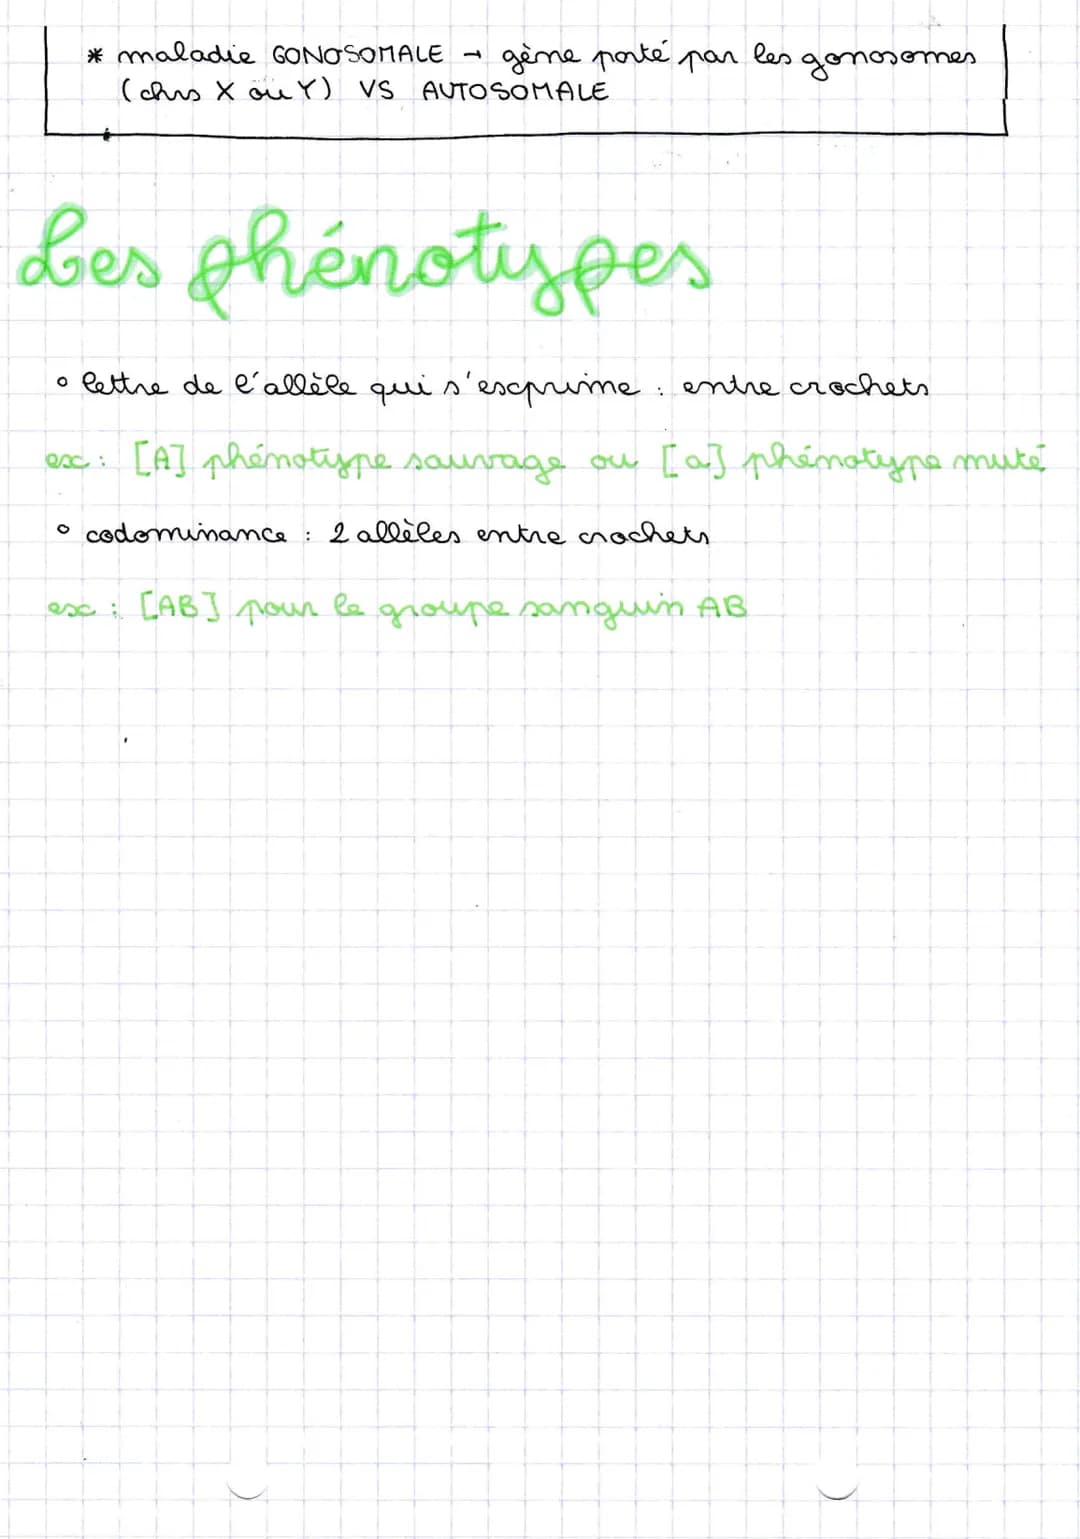 * maladie GONOSOMALE → gène porté par les gonosomes
(chrs X ou Y) VS AUTOSOMALE
Les phénotypes
° lettre de l'allèle qui s'exprime : entre crochets
ex : [A] phénotype sauvage ou [a] phénotype muté
° codominance : 2 allèles entre crochets
ex : [AB] pour le groupe sanguin AB